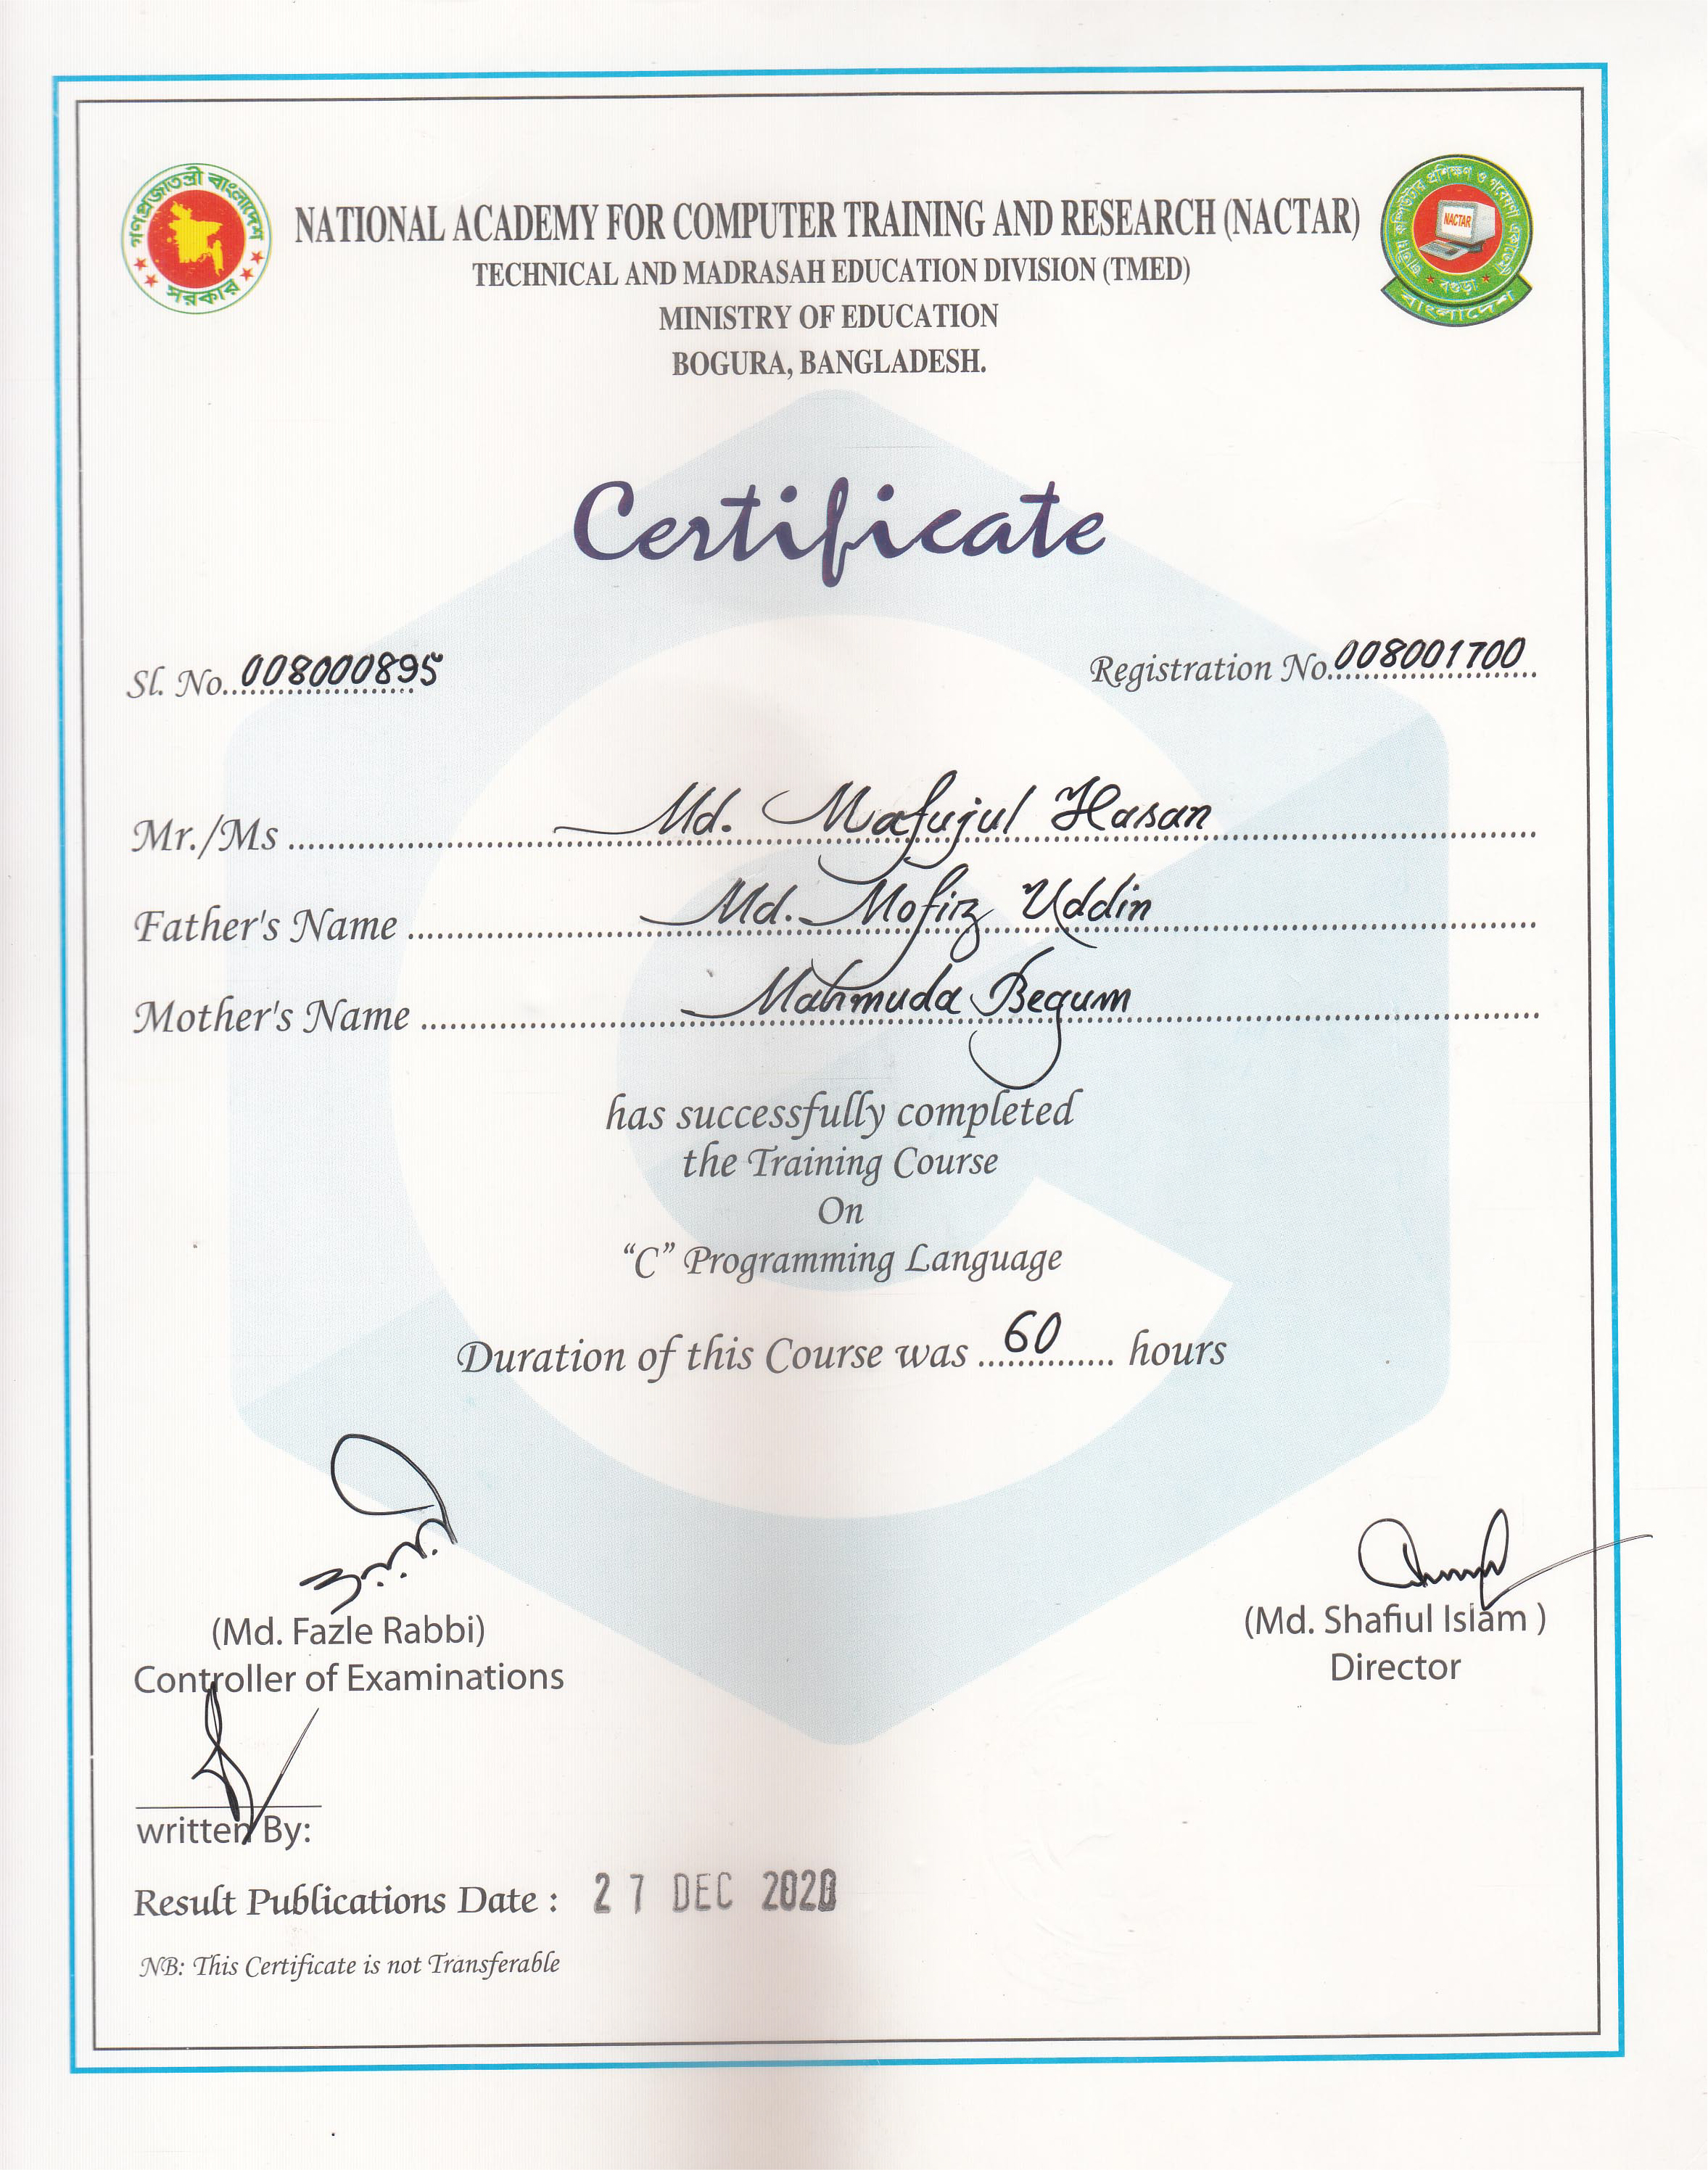 গণপ্রজাতন্ত্রী বাংলাদেশ
সরকার
জাতীয় কম্পিউটার প্রশিক্ষণ ও গবেষণা একাডেমী
NACTAR
বগুড়া
বাংলাদেশ
NATIONAL ACADEMY FOR COMPUTER TRAINING AND RESEARCH (NACTAR)
TECHNICAL AND MADRASAH EDUCATION DIVISION (TMED)
MINISTRY OF EDUCATION
BOGURA, BANGLADESH.
Certificate
Sl. No. 008000895 Registration No. 008001700
Mr./Ms Md. Mafujul Hasan
Father's Name Md. Mofiz Uddin
Mother's Name Mahmuda Begum
has successfully completed
the Training Course
On
“C” Programming Language
Duration of this Course was 60 hours
(Md. Fazle Rabbi) (Md. Shafiul Islam )
Controller of Examinations Director
written By:
Result Publications Date : 27 DEC 2020
NB: This Certificate is not Transferable